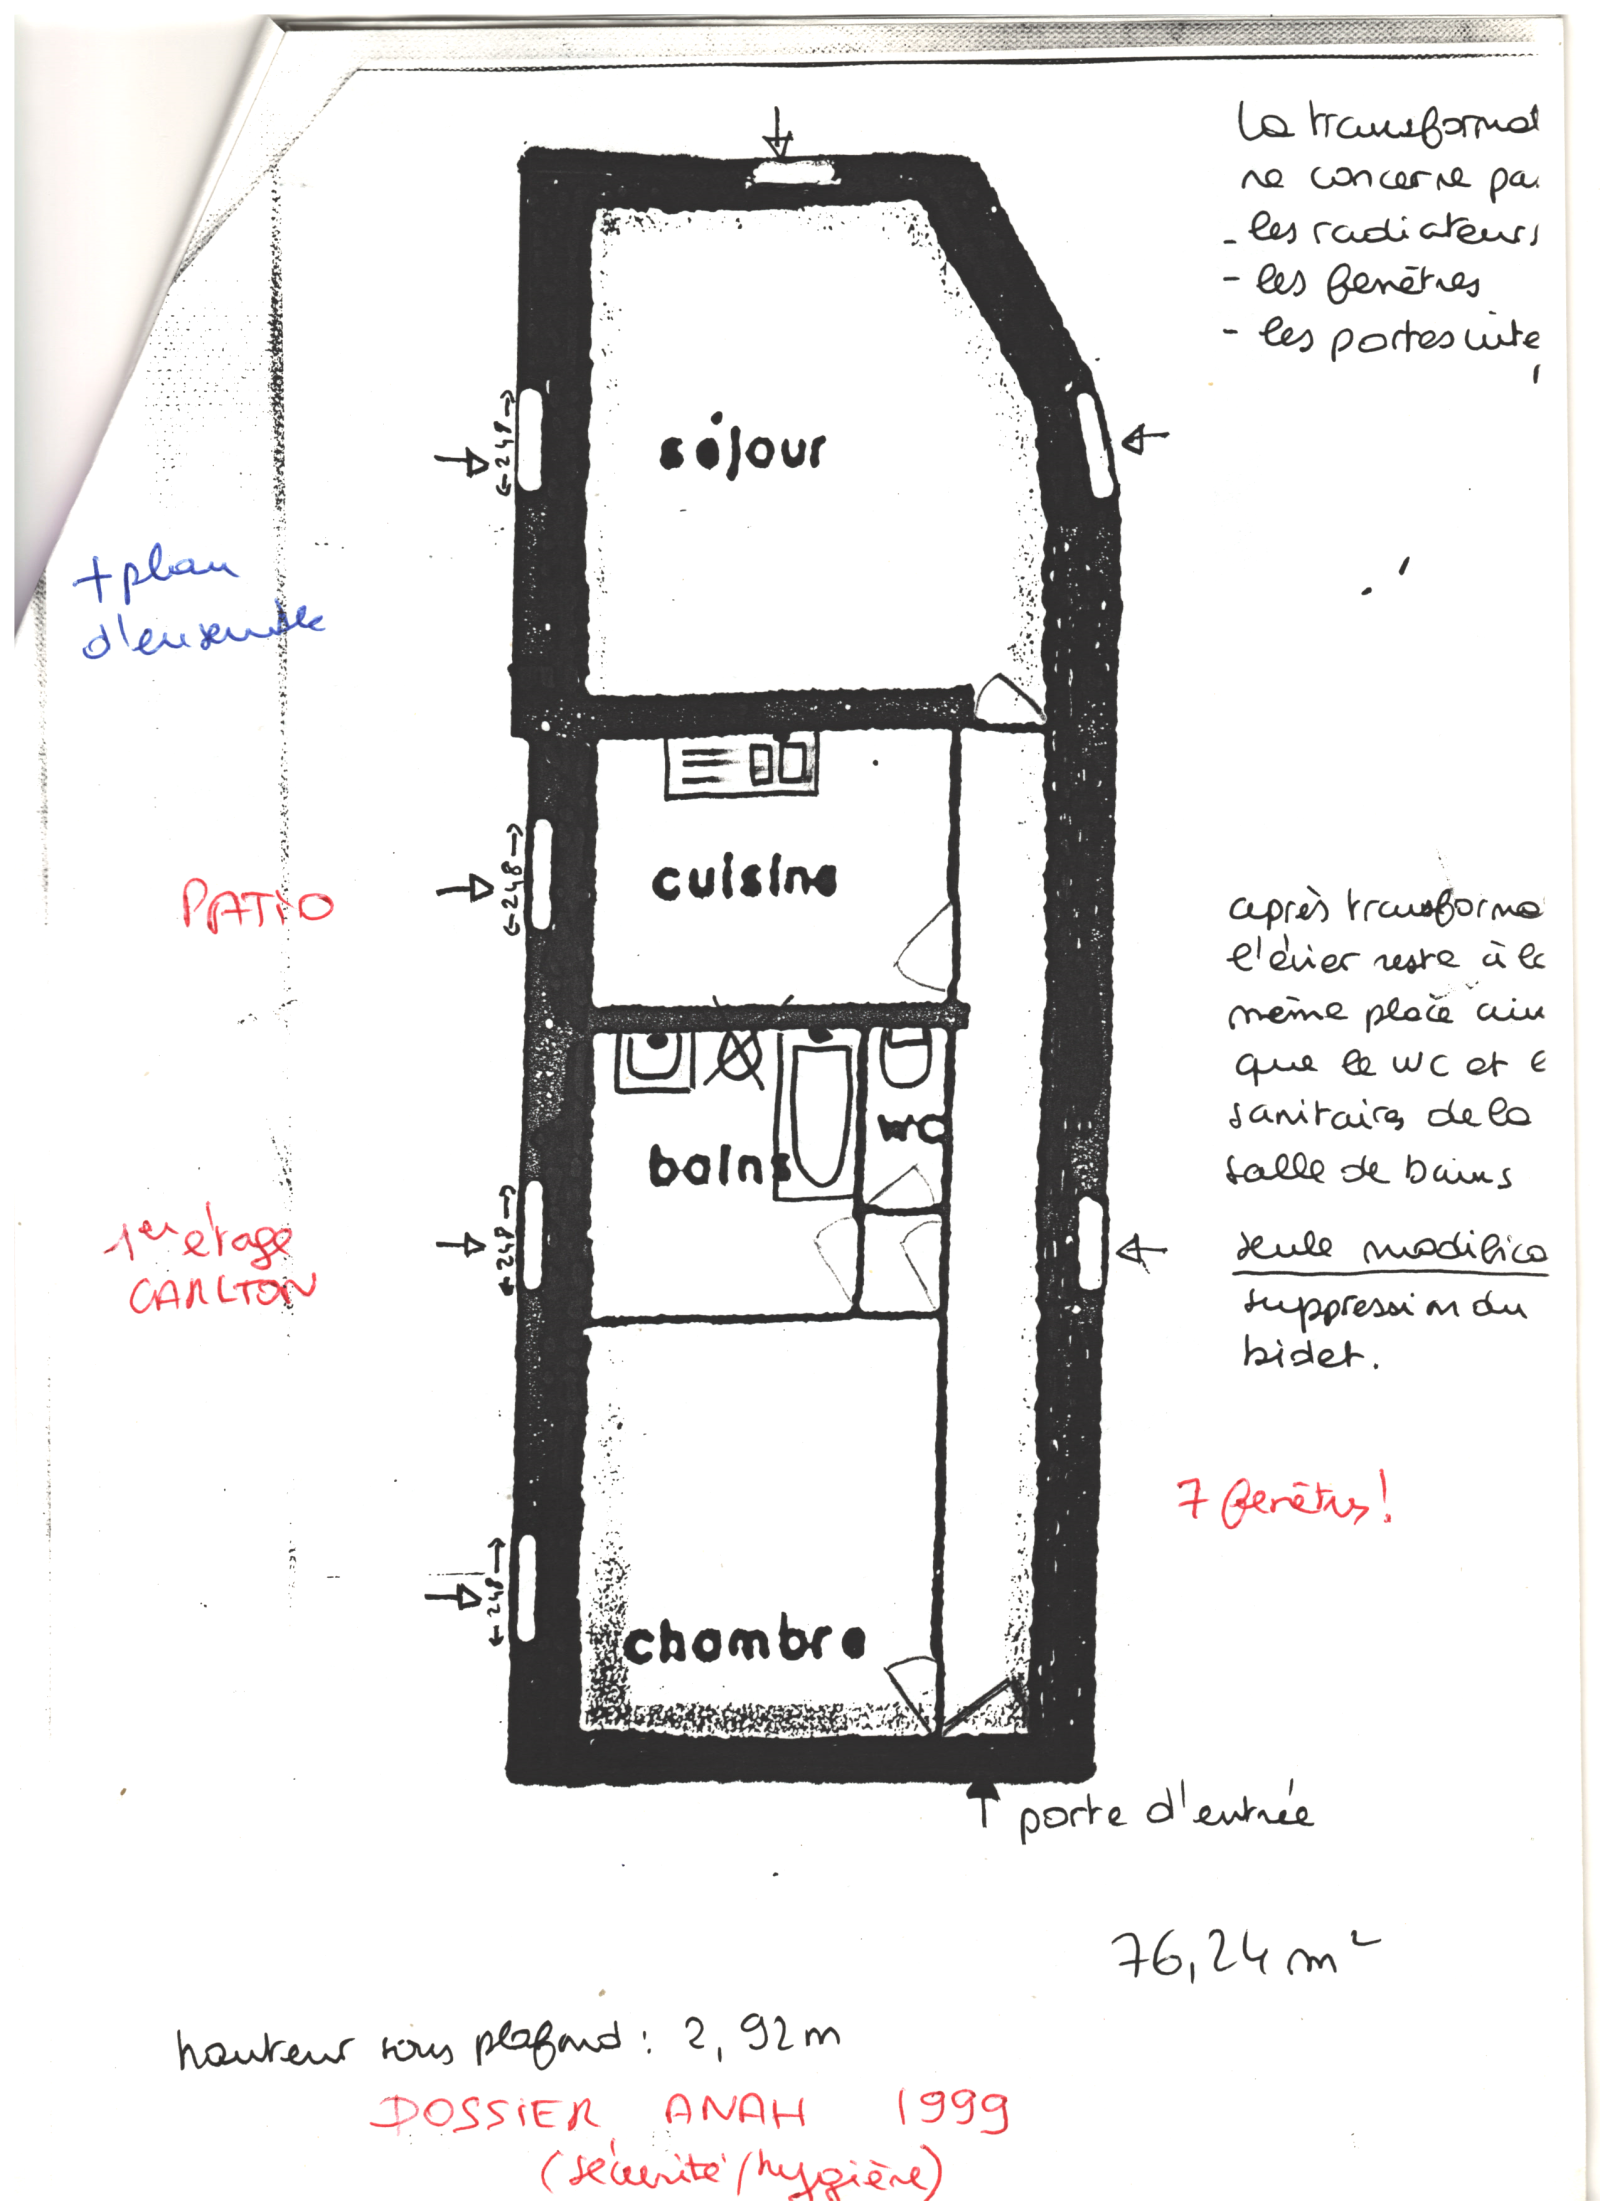 La transformat
ne concerne pas
- les radiateurs
- les fenêtres
- les portes inté
séjour
←248→
+ plan
d'ensemble
cuisine
←248→
PATIO
après transforma
l'évier reste à la
même place ain
que le WC et l
sanitaires de la
salle de bains
seule modifica
suppression du
bidet.
WC
bains
←248→
1er étage
CARLTON
7 fenêtres!
←248→
chambre
porte d'entrée
76,24 m²
hauteur sous plafond : 2,92m
DOSSIER ANAH 1999
(sécurité/hygiène)